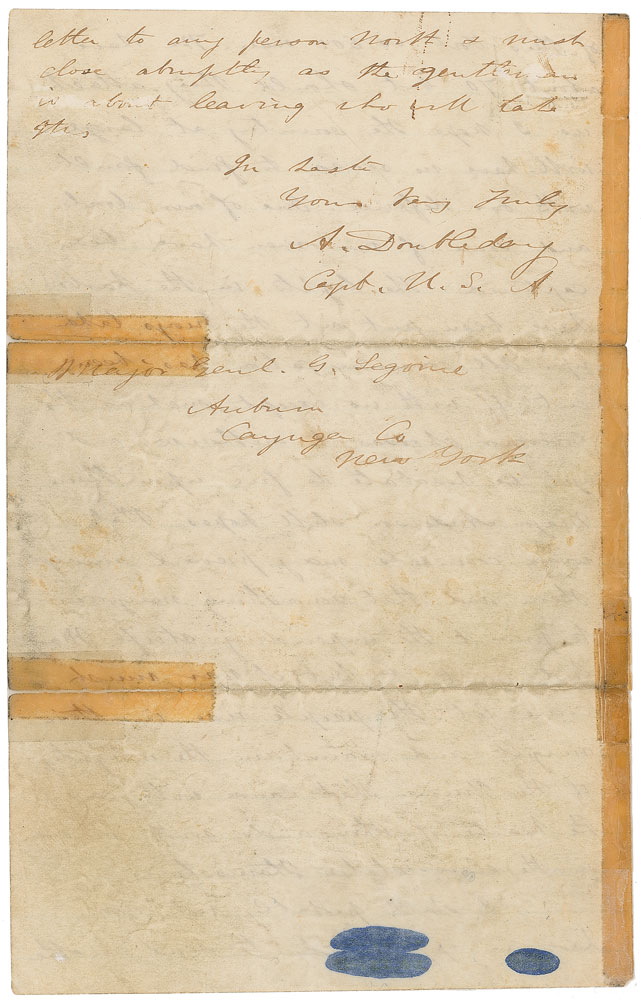 letter to any person North & must
close abruptly as the gentleman
is about leaving who will take
this,
In haste
Yours Very Truly
A. Doubleday
Capt. U. S. A.
Major Genl. G. Segoine
Auburn
Cayuga Co
New York